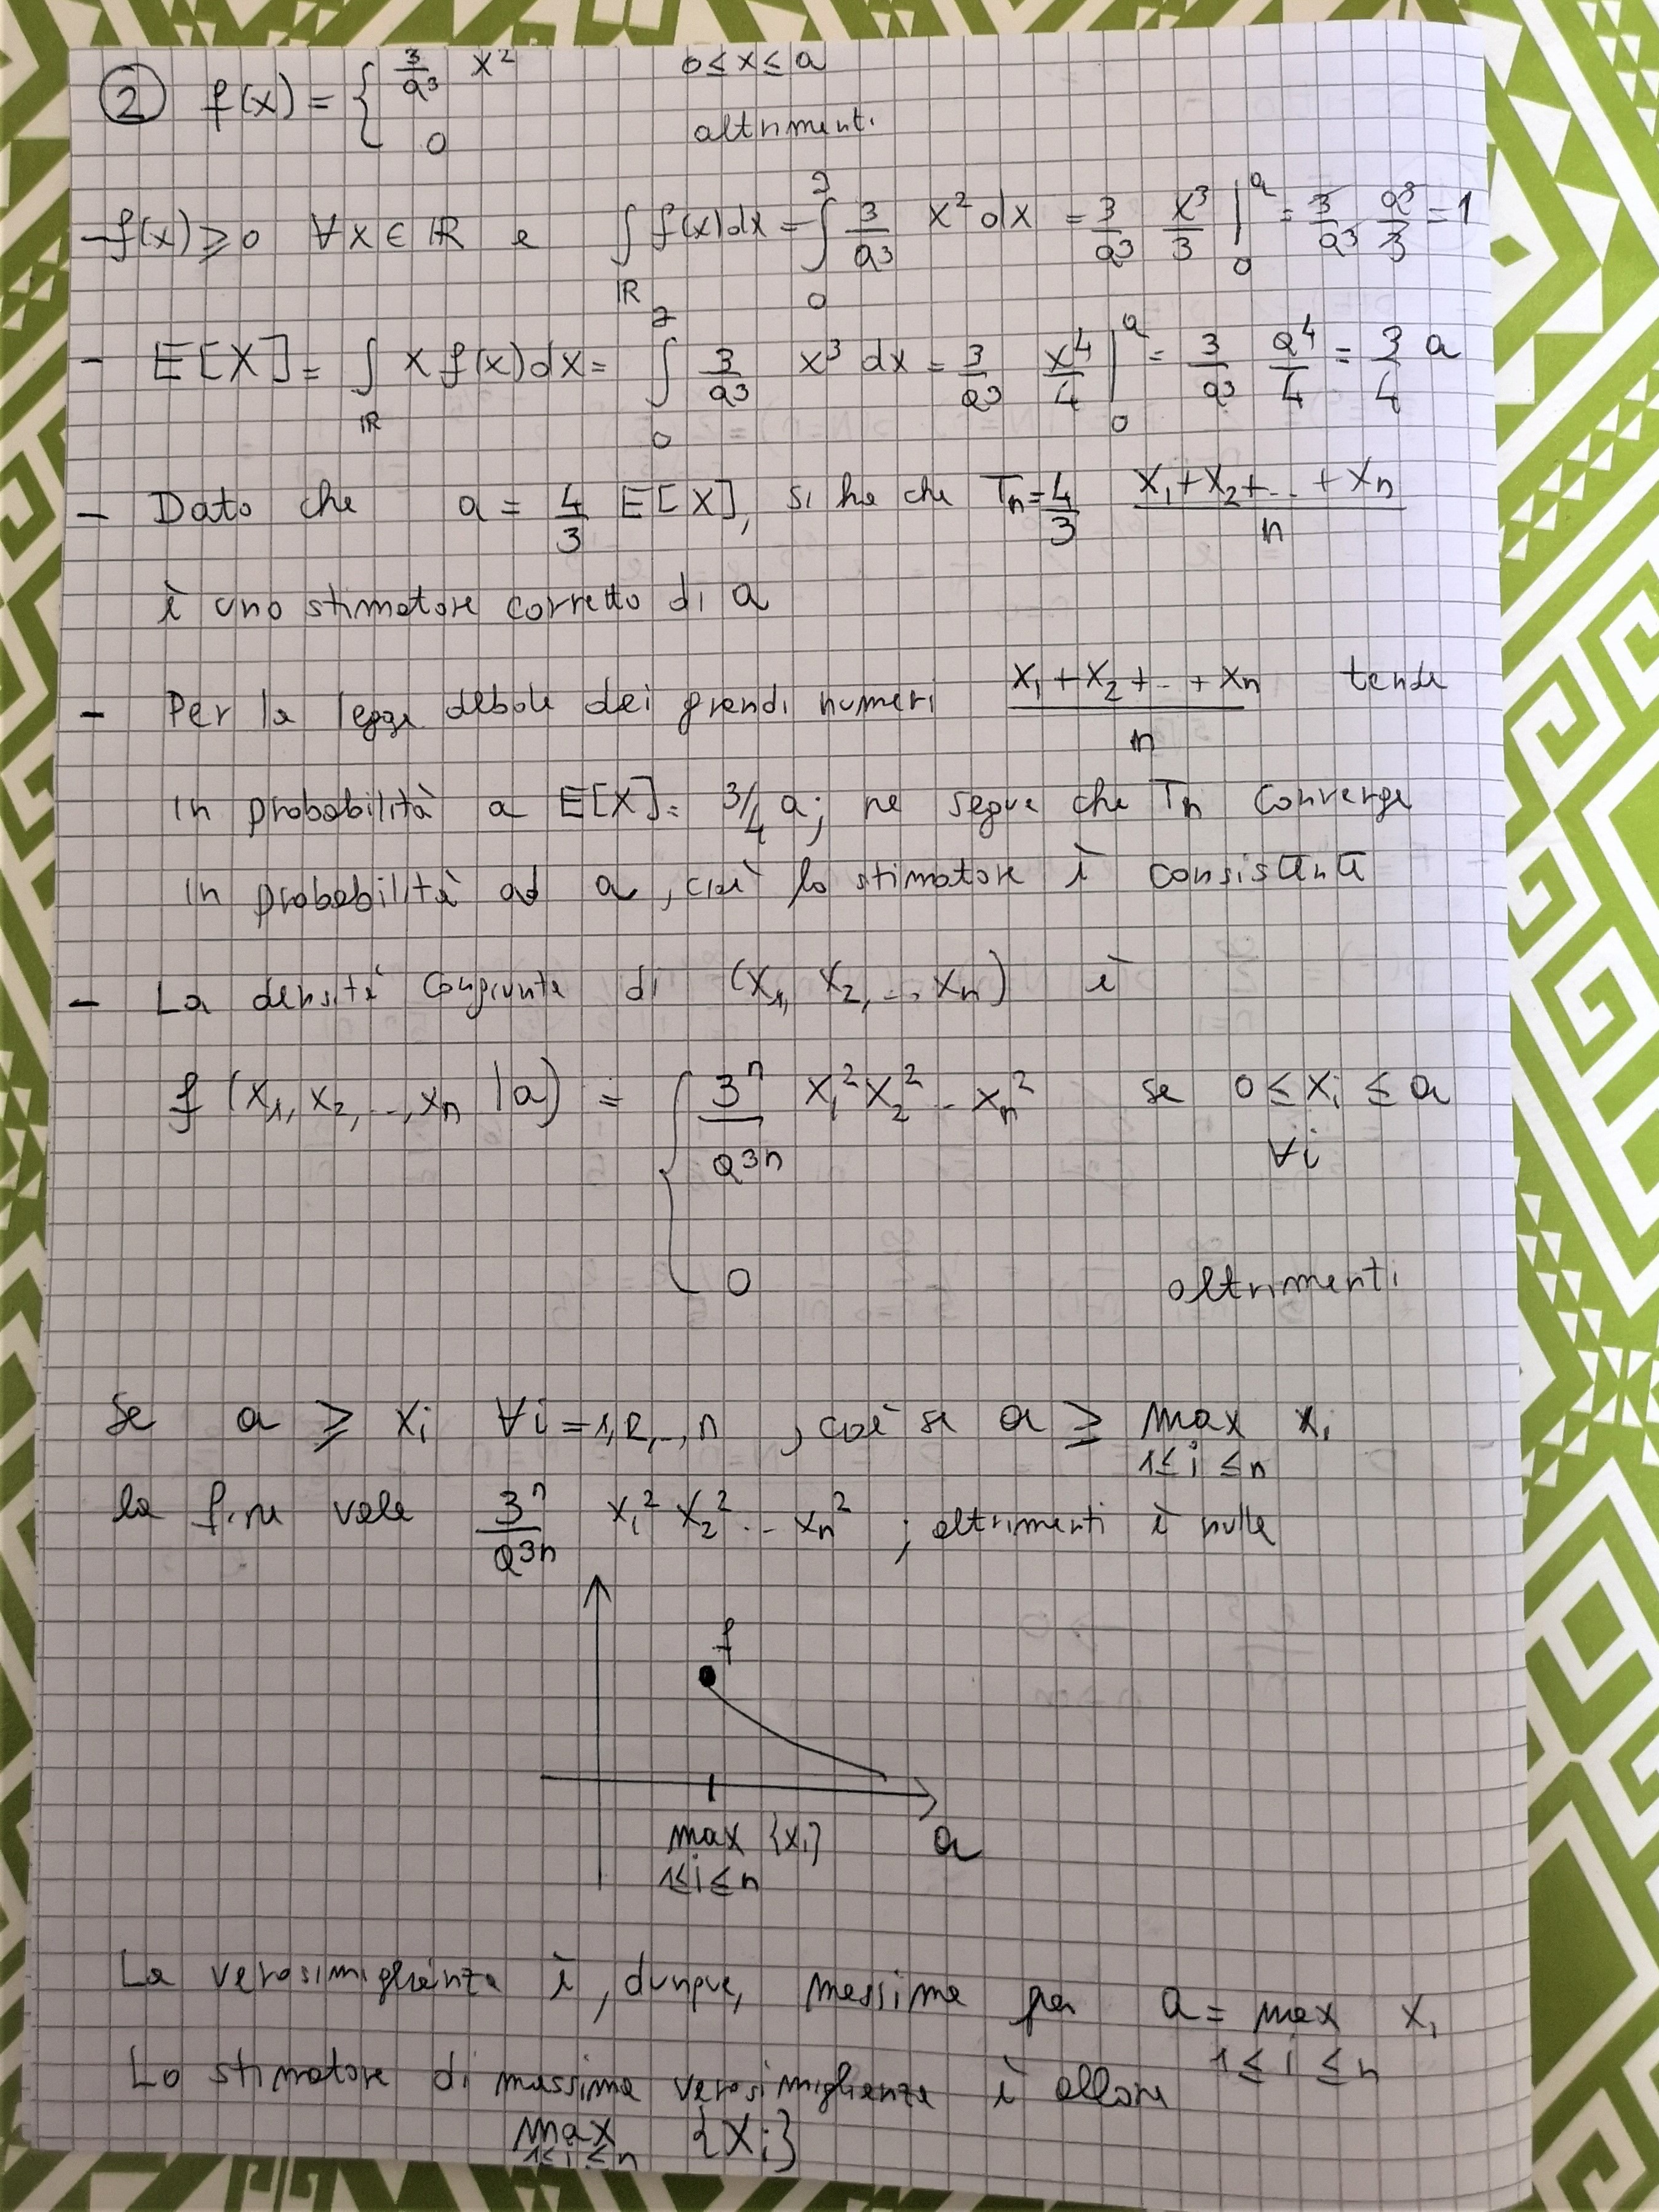 ② f(x) = { 3/a³ x² 0≤x≤a
0 altrimenti
- f(x) ≥ 0 ∀x∈ℝ e ∫_ℝ f(x)dx = ∫_0^a 3/a³ x² dx = 3/a³ x³/3 |_0^a = 3/a³ a³/3 = 1
- E[X] = ∫_ℝ x f(x)dx = ∫_0^a 3/a³ x³ dx = 3/a³ x⁴/4 |_0^a = 3/a³ a⁴/4 = 3/4 a
- Dato che a = 4/3 E[X], si ha che Tn = 4/3 (X₁+X₂+...+Xn)/n
è uno stimatore corretto di a
- Per la legge debole dei grandi numeri (X₁+X₂+...+Xn)/n tende
in probabilità a E[X] = 3/4 a; ne segue che Tn converge
in probabilità ad a, cioè lo stimatore è consistente
- La densità congiunta di (X₁, X₂, ..., Xn) è
f (x₁, x₂, ..., xn | a) = { 3ⁿ/a³ⁿ x₁² x₂² ... xn² se 0≤xi≤a
∀i
0 altrimenti
Se a ≥ xi ∀i=1,2,..,n, cioè se a ≥ max xi
1≤i≤n
la f.ne vale 3ⁿ/a³ⁿ x₁² x₂² ... xn² ; altrimenti è nulla
f
max {xi} a
1≤i≤n
La verosimiglianza è, dunque, massima per a = max xi
1≤i≤n
Lo stimatore di massima verosimiglianza è allora
max {Xi}
1≤i≤n